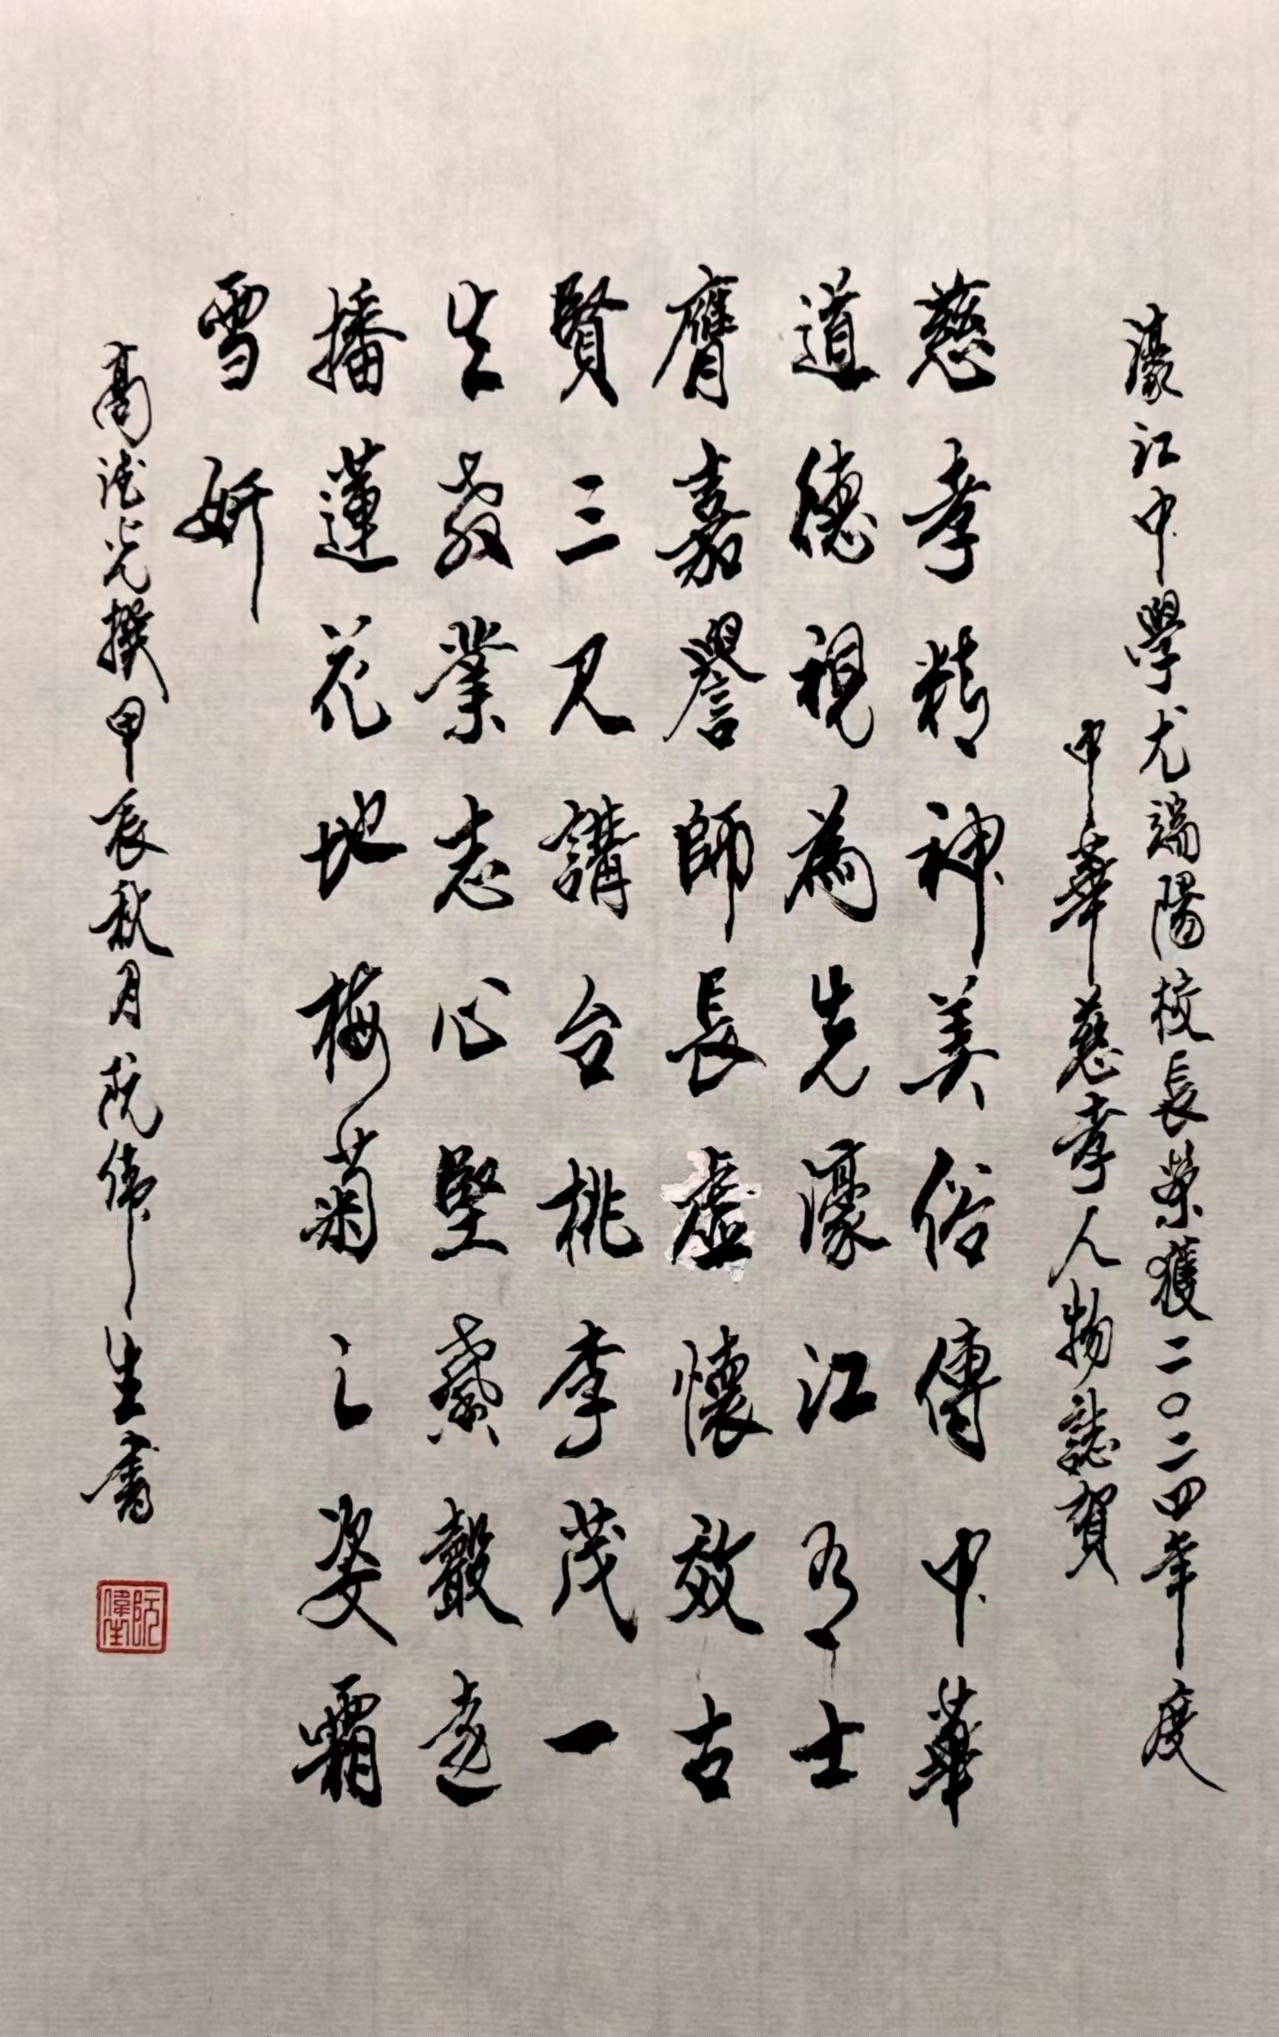 濠江中學尤端陽校長榮獲二〇二四年度
中華慈孝人物誌賀
慈孝精神美俗傳中華
道德視為先濠江有士
膺嘉譽師長虛懷效古
賢三尺講台桃李茂一
生教業志心堅紫馨遠
播蓮花地梅菊之姿霜
雪妍
高德光撰甲辰秋月阮偉生書
阮偉生